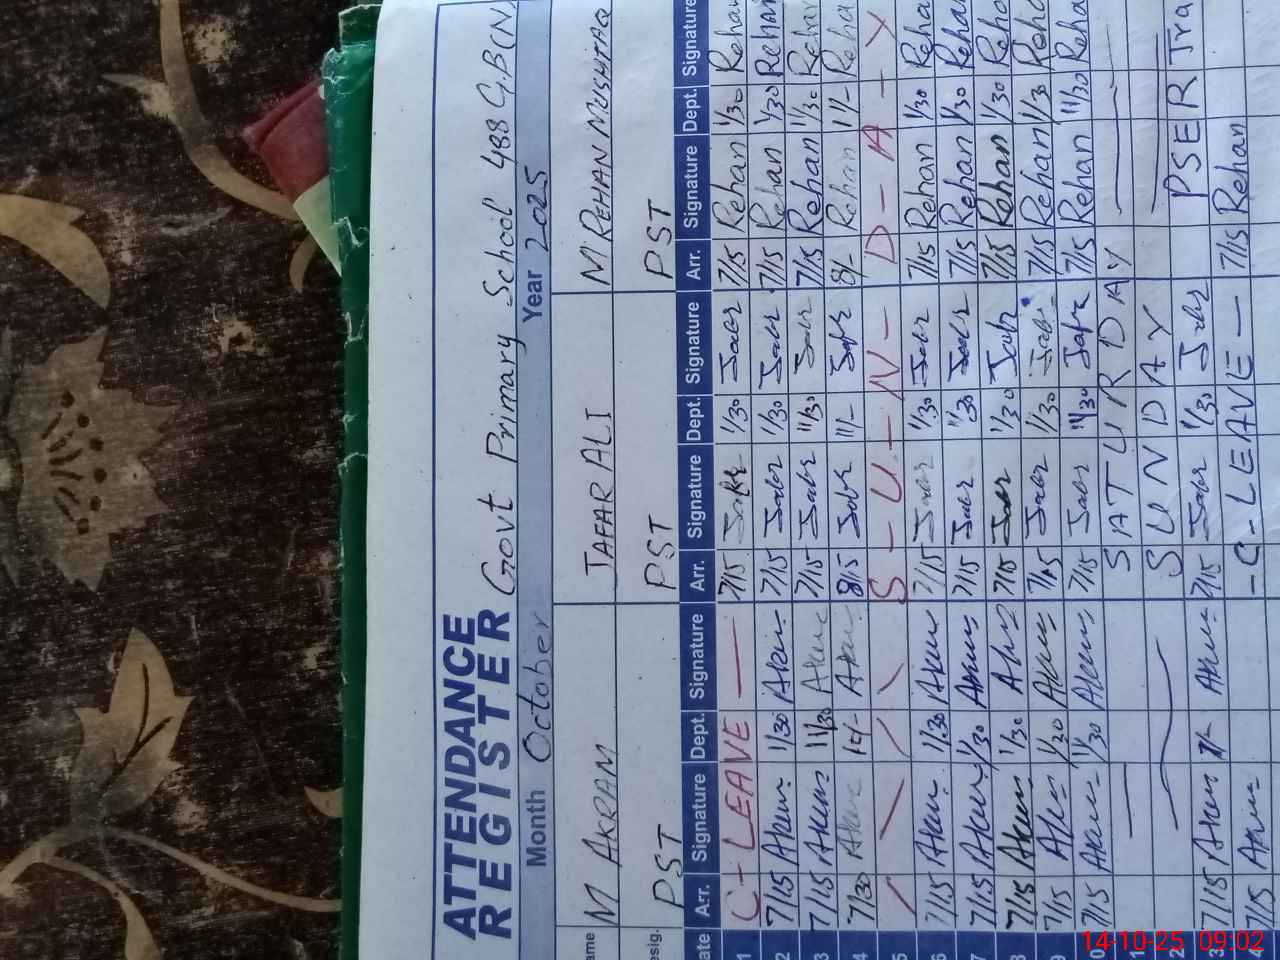 ATTENDANCE
REGISTER Govt Primary School 488 G.B (N
Month October Year 2025
ame M AKRAM JAFAR ALI M REHAN MUSHTAQ
esig. PST PST PST
ate Arr. Signature Dept. Signature Arr. Signature Dept. Signature Arr. Signature Dept. Signature
1 C - LEAVE — 7/15 Jafr 1/30 7/15 Rehan 1/30 Rehan
2 7/15 Akram 1/30 Akram 7/15 1/30 7/15 Rehan 1/30 Rehan
3 7/15 Akram 11/30 Akram 7/15 11/30 7/15 Rehan 11/30 Rehan
4 7/30 Akram Akram 8/15 Jafr 11/- Jafr 8/- Rehan 11/- Reha
5 S - U - N - D - A - Y
6 7/15 Akram 1/30 Akram 7/15 1/30 7/15 Rehan 1/30 Reha
7 7/15 Akram 1/30 Akram 7/15 1/30 7/15 Rehan 1/30 Reha
8 7/15 Akram 1/30 7/15 1/30 7/15 Rehan 1/30 Reho
9 7/15 1/30 Akram 7/15 1/30 7/15 Rehan 1/3 Reho
10 7/15 Akram 11/30 Akram 7/15 11/30 Jafr 7/15 Rehan 11/30 Reha
1 SATURDAY
2 SUNDAY PSER Tra
3 7/15 Akram Akram 7/15 1/30
4 7/15 Akram - C - LEAVE — 7/15 Rehan
14-10-25 09:02